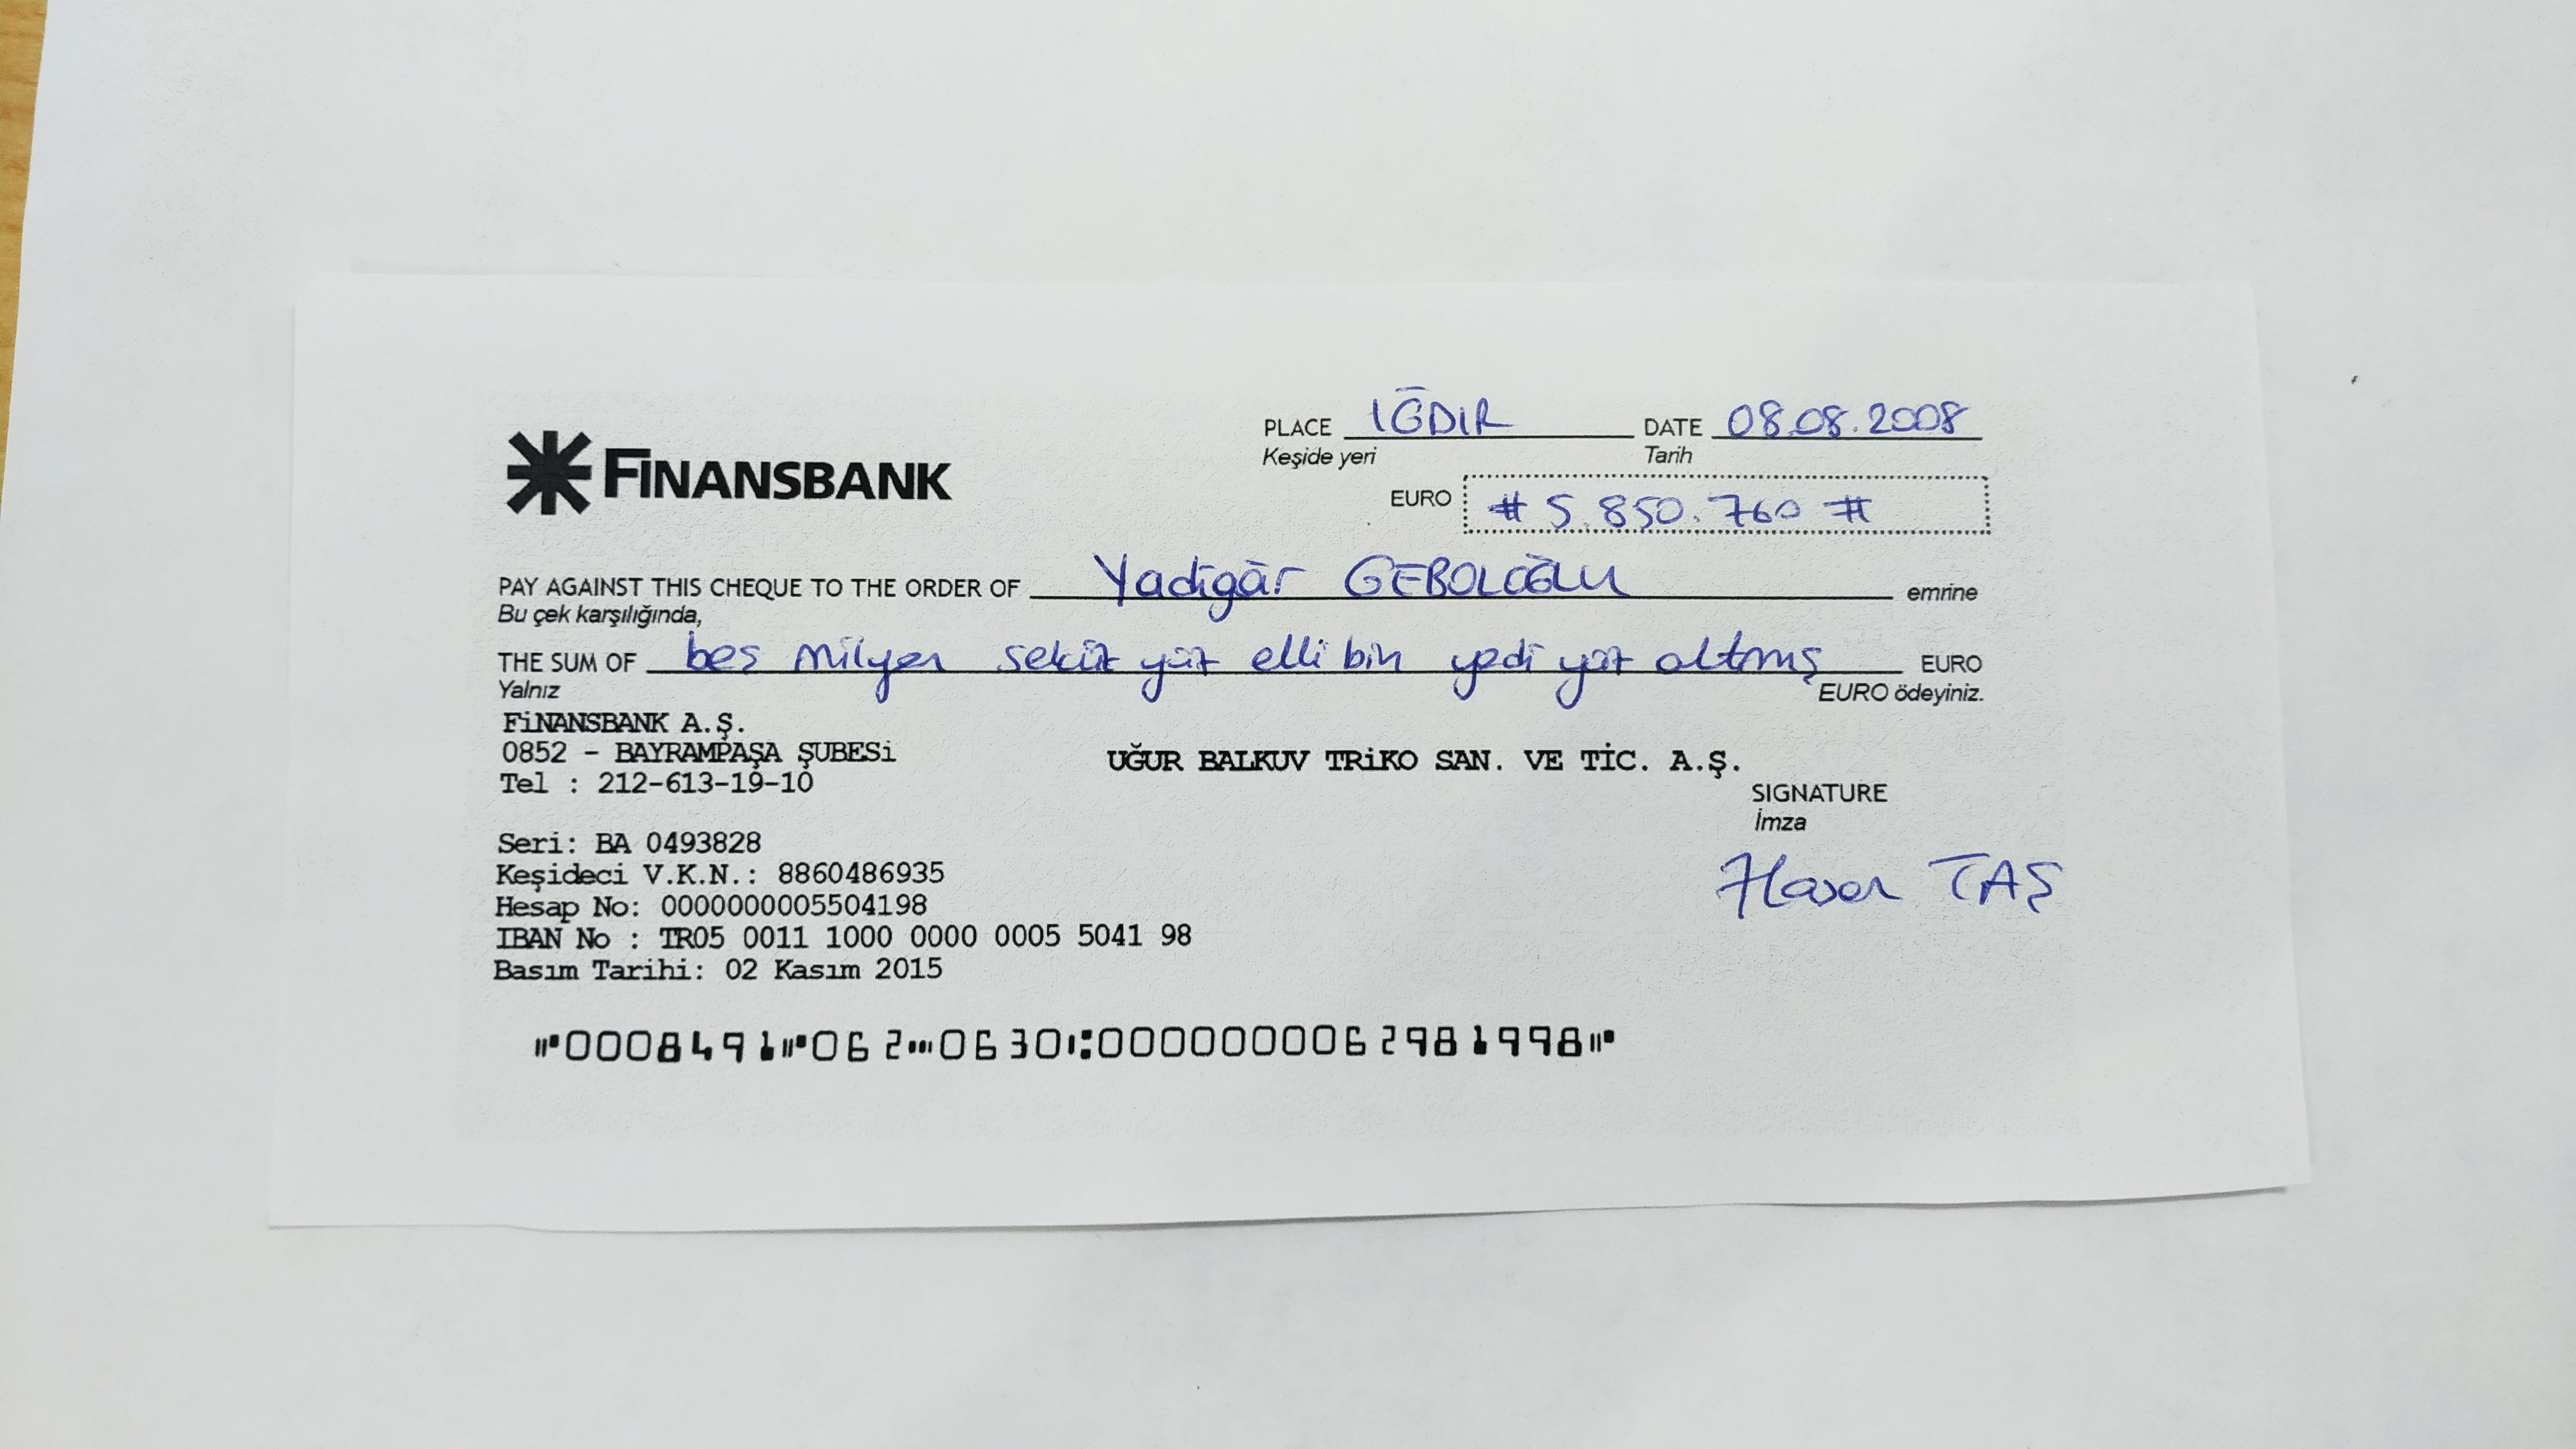 PLACE IĞDIR DATE 08.08.2008
Keşide yeri Tarih
FİNANSBANK
EURO # 5.850.760 #
PAY AGAINST THIS CHEQUE TO THE ORDER OF Yadigâr GEBOLOĞLU emrine
Bu çek karşılığında,
THE SUM OF beş milyon sekiz yüz elli bin yedi yüz altmış EURO
Yalnız EURO ödeyiniz.
FİNANSBANK A.Ş.
0852 - BAYRAMPAŞA ŞUBESİ
Tel : 212-613-19-10
UĞUR BALKUV TRİKO SAN. VE TİC. A.Ş.
SIGNATURE
İmza
Hasan TAŞ
Seri: BA 0493828
Keşideci V.K.N.: 8860486935
Hesap No: 0000000005504198
IBAN No : TR05 0011 1000 0000 0005 5041 98
Basım Tarihi: 02 Kasım 2015
⑈0008491⑈062⑉0630⑆0000000062981998⑈